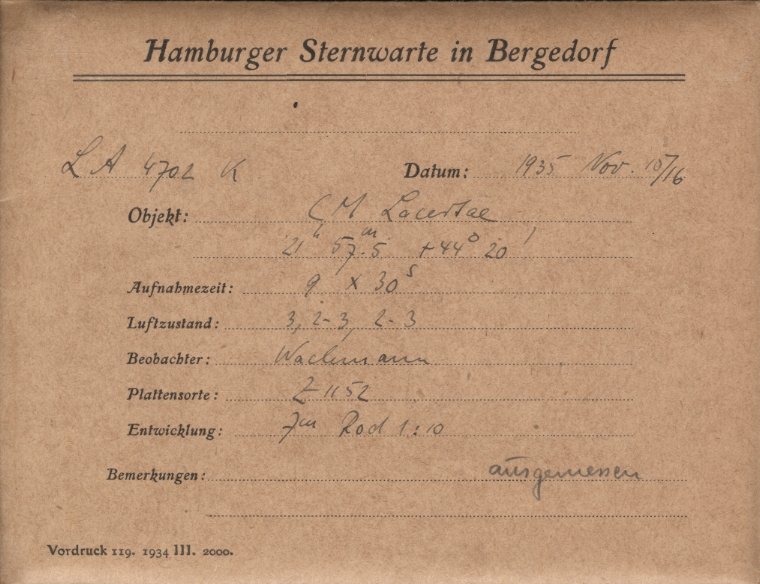 Hamburger Sternwarte in Bergedorf
LA 4702 K Datum: 1935 Nov. 15/16
Objekt: CM Lacertae
21ʰ 57ᵐ.5 +44° 20'
Aufnahmezeit: 9 x 30ˢ
Luftzustand: 3, 2-3, 2-3
Beobachter: Wachmann
Plattensorte: Z 1152
Entwicklung: 7ᵐ Rod 1:10
Bemerkungen: ausgemessen
Vordruck 119. 1934 III. 2000.